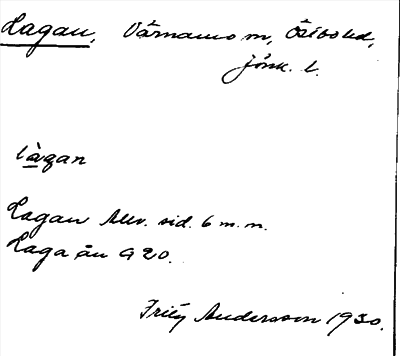 Lagan, Värnamo m, Östbo hd,
Jönk. l.
làgan
Lagan Allv. sid. 6 m. m.
Laga ån G 20.
Fritz Andersson 1930.